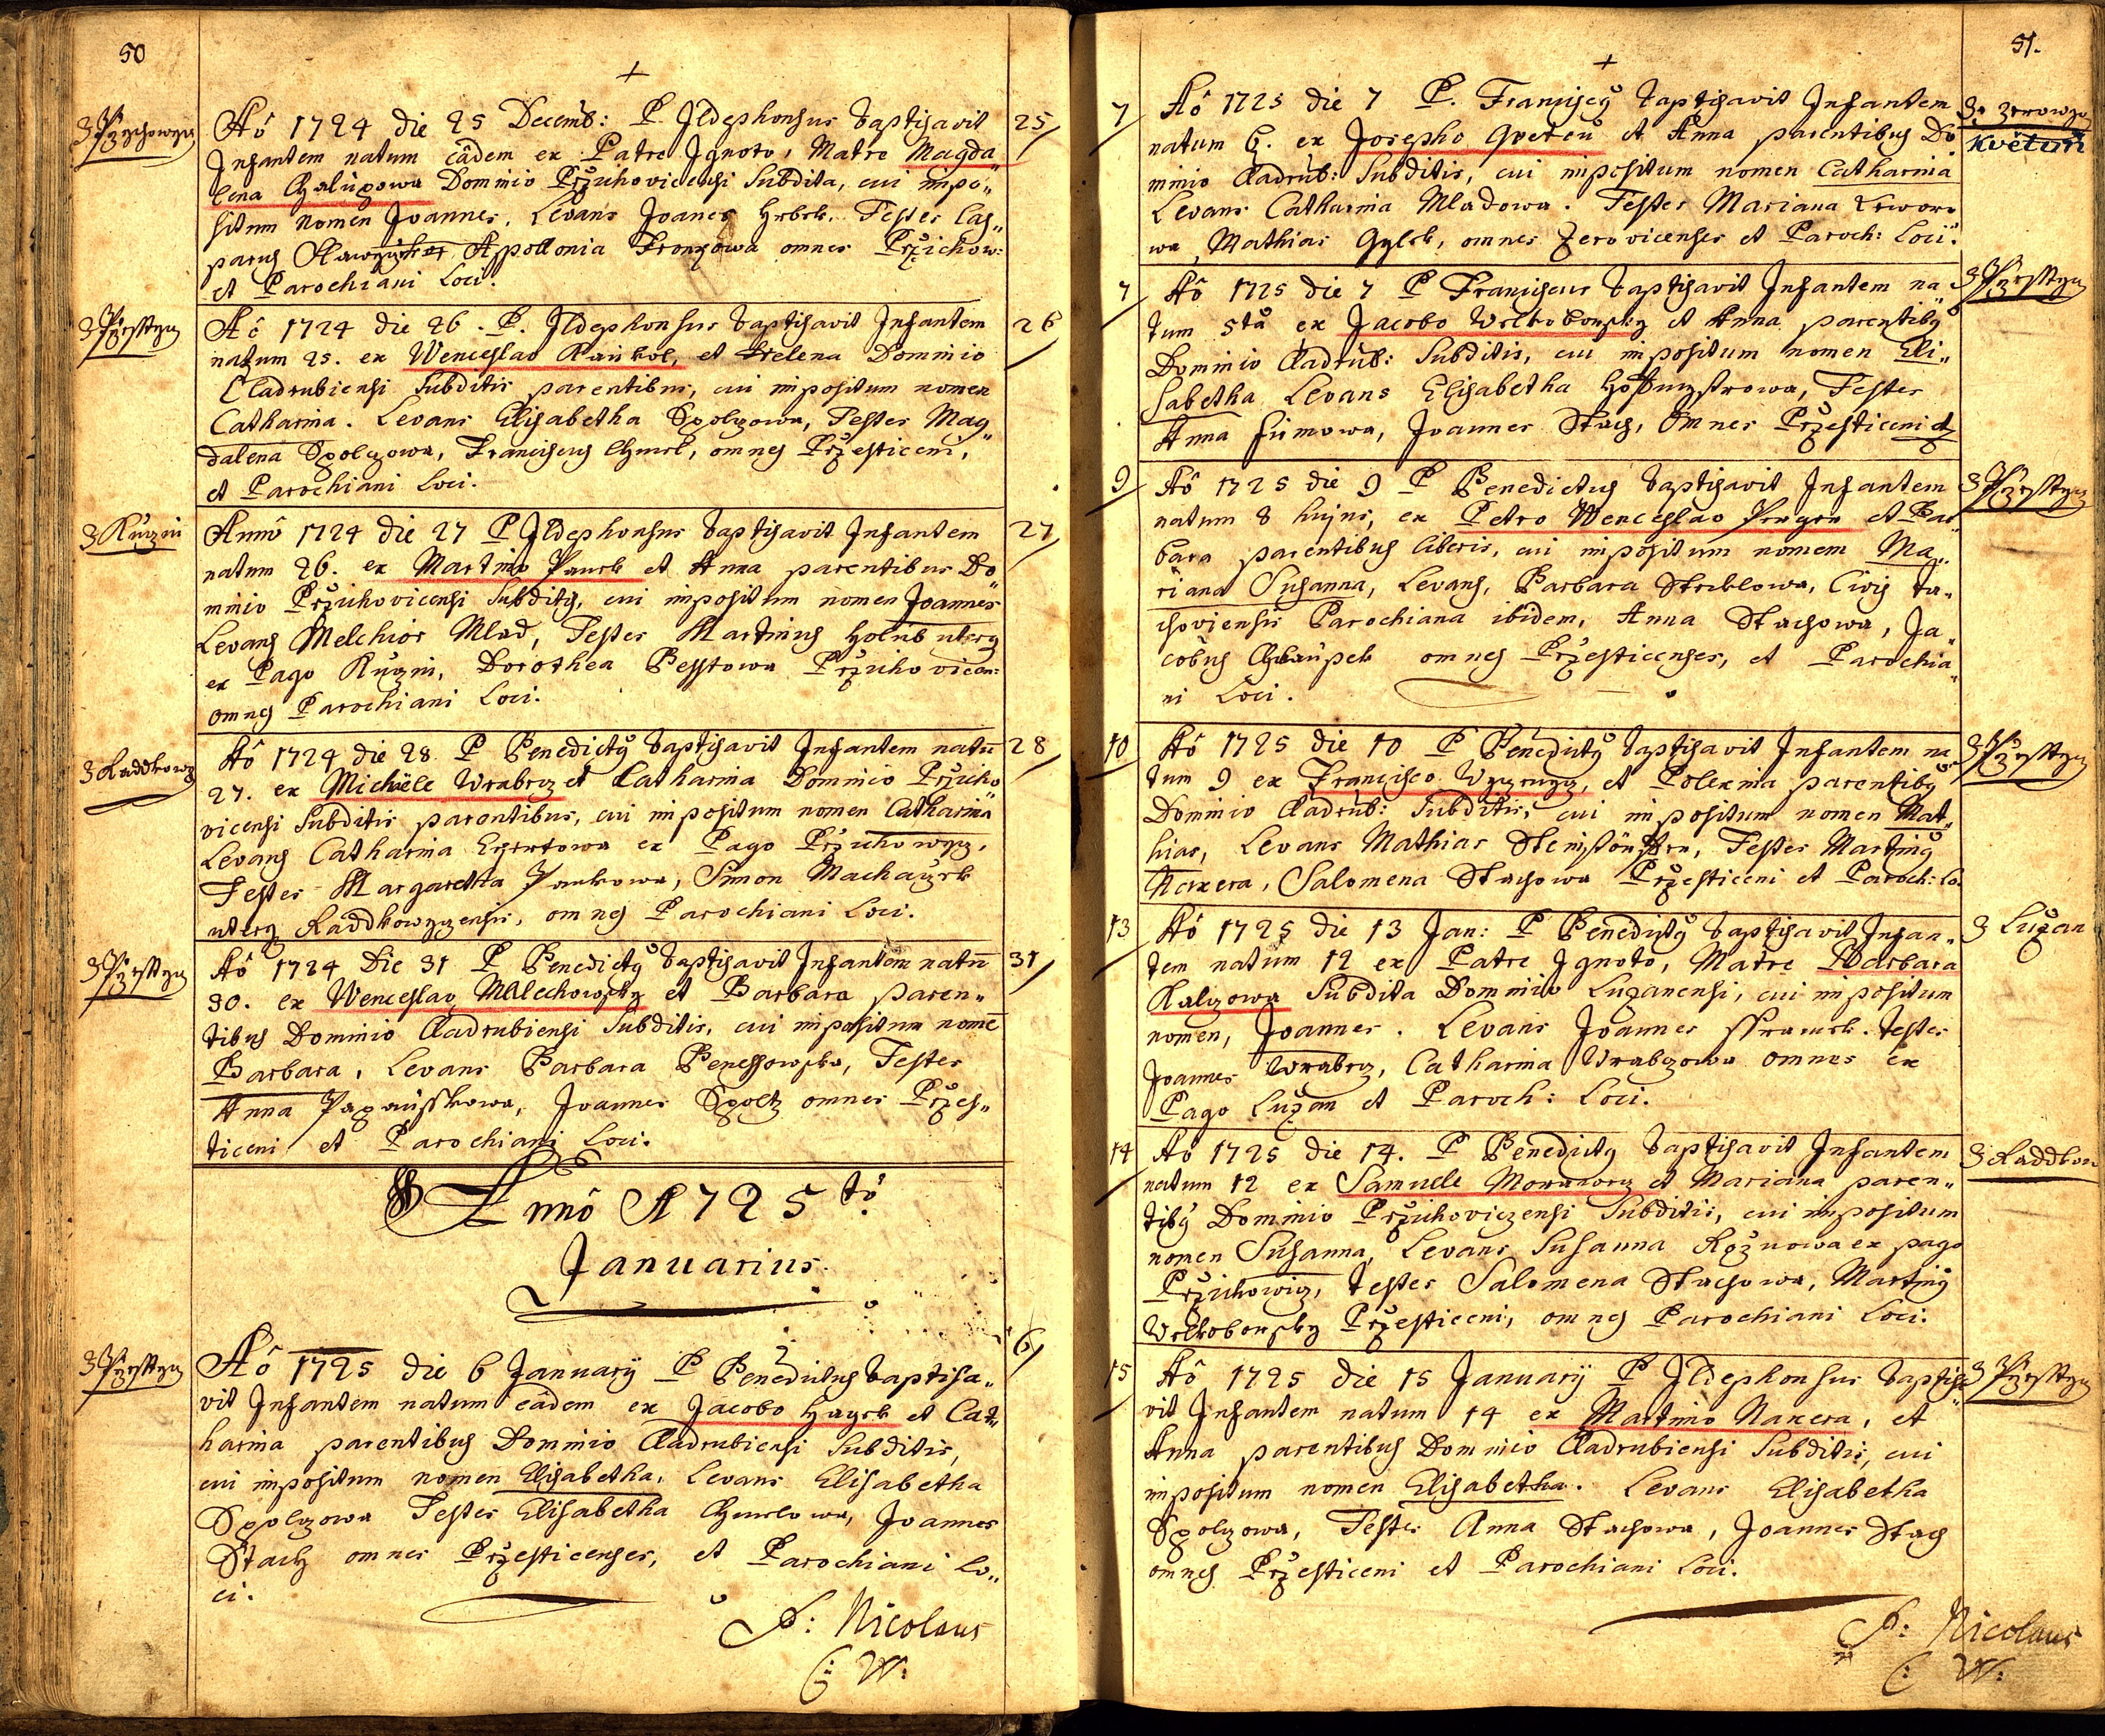 50
+
z Przychowycz
Aô 1724 die 25 Decemb: P. Ildephonsus baptisavit
25
Infantem natum eâdem ex Patre Ignoto, Matre Magda„
lena Chalupowa Dominio Przichovicensi Subdita, cui impo„
situm nomen Joannes, Levans Joanes Hrbek. Testes Cas„
parus Apollonia Fronkowa omnes Przichow:
et Parochiani Loci.
z Przesstycz
Aô 1724 die 26. P. Ildephonsus baptisavit Infantem
26
natum 25. ex Wenceslao Kaukol, et Helena Dominio
Cladrubiensi Subditis parentibus, cui impositum nomen
Catharina. Levans Elisabetha Spolczowa, Testes Mag„
dalena Spolczowa, Franciscus Chmel, omnes Przesticeni,
et Parochiani Loci.
z Kuczin
Annô 1724 die 27 P Ildephonsus baptisavit Infantem
27
natum 26. ex Martino Panek et Anna parentibus Do
minio Przichovicensi Subditis, cui impositum nomen Joannes
Levans Melchior Mlad, Testes Martinus Holub uterq
ex Pago Kuczin, Dorothea Pesstowa Przichovicen:
omnes Parochiani Loci.
z Raddkowycz
Aô 1724 die 28 P Benedictus baptisavit Infantem natu
28
27. ex Michaële Wrabecz et Catharina Dominio Przicho
vicensi Subditis parentibus, cui impositum nomen Catharina
Levans Catharina Egertowa ex Pago Przichowycz,
Testes Margaretha Pankowa, Simon Machaczek
uterq Raddkowyczensis, omnes Parochiani Loci.
z Przesstycz
Aô 1724 Die 31 P Benedictus baptisavit Infantem natu
31
30. ex Wenceslao Malechowsky et Barbara paren„
tibus Dominio Cladrubiensi Subditis, cui impositum nome
Barbara, Levans Barbara Benessowska, Testes
Anna Papausskowa, Joannes Spoltz omnes Przes„
ticeni et Parochiani Loci.
Annô 1725tô
Januarius.
z Przesstycz
Aô 1725 die 6 Januarij P Benedictus baptisa„
6
vit Infantem natum eâdem ex Jacobo Hayek et Cat„
harina parentibus Dominio Cladrubiensi Subditis,
cui impositum nomen Elisabetha, Levans Elisabetha
Spolczowa Testes Elisabetha Chmelowa, Joannes
Stach omnes Przesticenses, et Parochiani Lo„
ci.
P: Nicolaus
C: W:
51.
+
7
Aô 1725 die 7 P. Franciscus baptisavit Infantem
ze Zerowycz
natum 6. ex Josepho Gveteu et Anna parentibus Do
Květuň
minio Cladrub: Subditis, cui impositum nomen Catharina
Levans Catharina Mladowa. Testes Mariana
wa, Mathias Gylek, omnes Zerovicenses et Paroch: Loci.
7
Aô 1725 die 7 P Franciscus baptisavit Infantem na
z Przesstycz
tum 5ta ex Jacobo Welkoborsky et Anna parentibus
Dominio Cladrub: Subditis, cui impositum nomen Eli„
sabetha Levans Elisabetha Hoffmystrowa, Testes
Anna Sumowa, Joannes Stach, Omnes Przesticeni
9
Aô 1725 die 9 P Benedictus baptisavit Infantem
z Przesstycz
natum 8 hujus, ex Petro Wenceslao et Bar
bara parentibus liberis, cui impositum nomem Ma„
riana Susanna, Levans, Barbara Steblowa, Civis ta„
choviensis Parochiana ibidem, Anna Stachowa, Ja„
cobus Chlaupek omnes Przesticenses, et Parochia„
ni Loci.
10
Aô 1725 die 10 P Benedictus baptisavit Infantem na
z Przesstycz
tum 9 ex Francisco et Polexina parentibus
Dominio Cladrub: Subditis, cui impositum nomen Mat„
hias, Levans Mathias Testes Martinus
Naxera, Salomena Stachowa Przesticeni et Paroch: Lo.
13
Aô 1725 die 13 Jan: P Benedictus baptisavit Infan„
z Luzan
tem natum 12 ex Patre Ignoto, Matre Barbara
Kalczowa Subdita Dominio Luzanensi, cui impositum
nomen, Joannes. Levans Joannes Testes
Joannes Wrabecz, Catharina Wrabczowa omnes ex
Pago Luzan et Paroch: Loci.
14
Aô 1725 die 14. P Benedictus baptisavit Infantem
z Raddkow
natum 12 ex Samuele et Mariana paren„
tibus Dominio Przichoviczensi Subditis, cui impositum
nomen Susanna, Levans Susanna ex pago
Przichowicz, Testes Salomena Stachowa, Martinus
Welkoborsky Przesticeni, omnes Parochiani Loci.
15
Aô 1725 die 15 Januarij P Ildephonsus baptisa
z Przesstycz
vit Infantem natum 14 ex Martino Naxera, et
Anna parentibus Dominio Cladrubiensi Subditis, cui
impositum nomen Elisabetha. Levans Elisabetha
Spolczowa, Testes Anna Stachowa, Joannes Stach
omnes Przesticeni et Parochiani Loci.
P: Nicolaus
C: W: